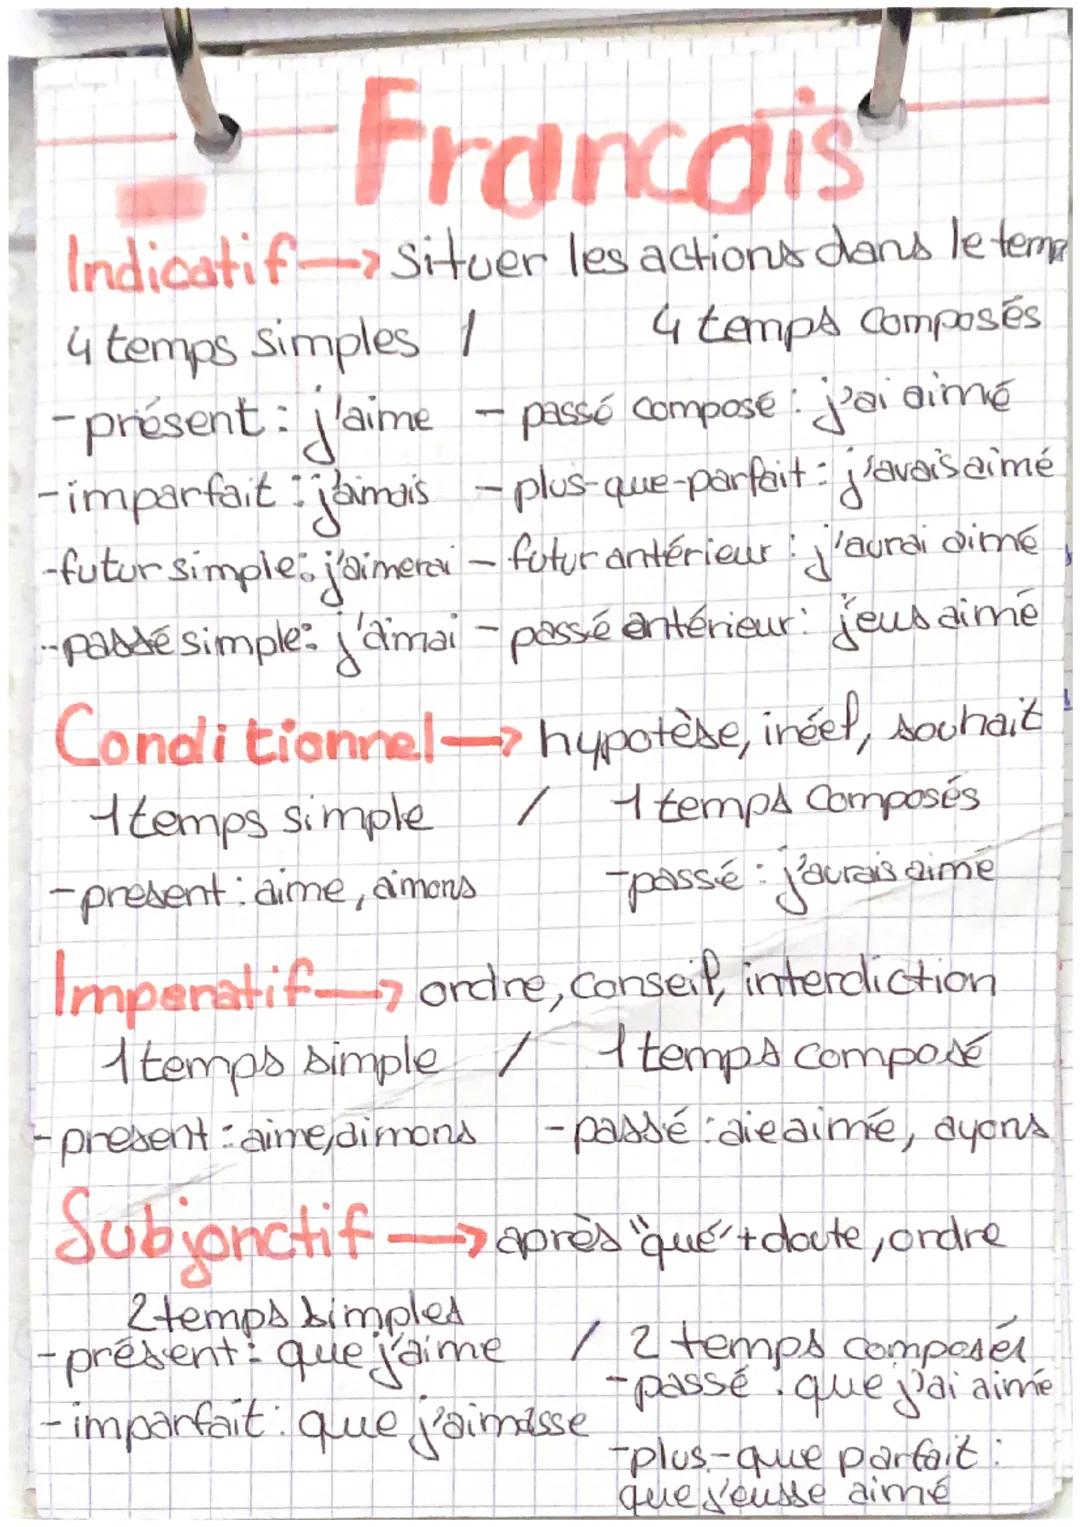 Francais
Indicatif → situer les actions dans le temp
4 temps simples / 4 temps composés
- présent : j'aime - passé composé : j'ai aimé
- imparfait : j'aimais - plus-que-parfait : j'avais aimé
- futur simple : j'aimerai - futur antérieur : j'aurai aimé
- passé simple : j'aimai - passé antérieur : j'eus aimé
Conditionnel → hypotèse, inéel, souhait
1 temps simple / 1 temps composés
- présent : aime, aimons - passé : j'aurais aimé
Imperatif → ordre, conseil, interdiction
1 temps simple / 1 temps composé
- present : aime, aimons - passé : aie aimé, ayons
Subjonctif → après "que" + doute, ordre
2 temps simples
- présent : que j'aime / 2 temps composés
- passé : que j'ai aimé
- imparfait : que j'aimasse
- plus-que parfait :
que j'eusse aimé